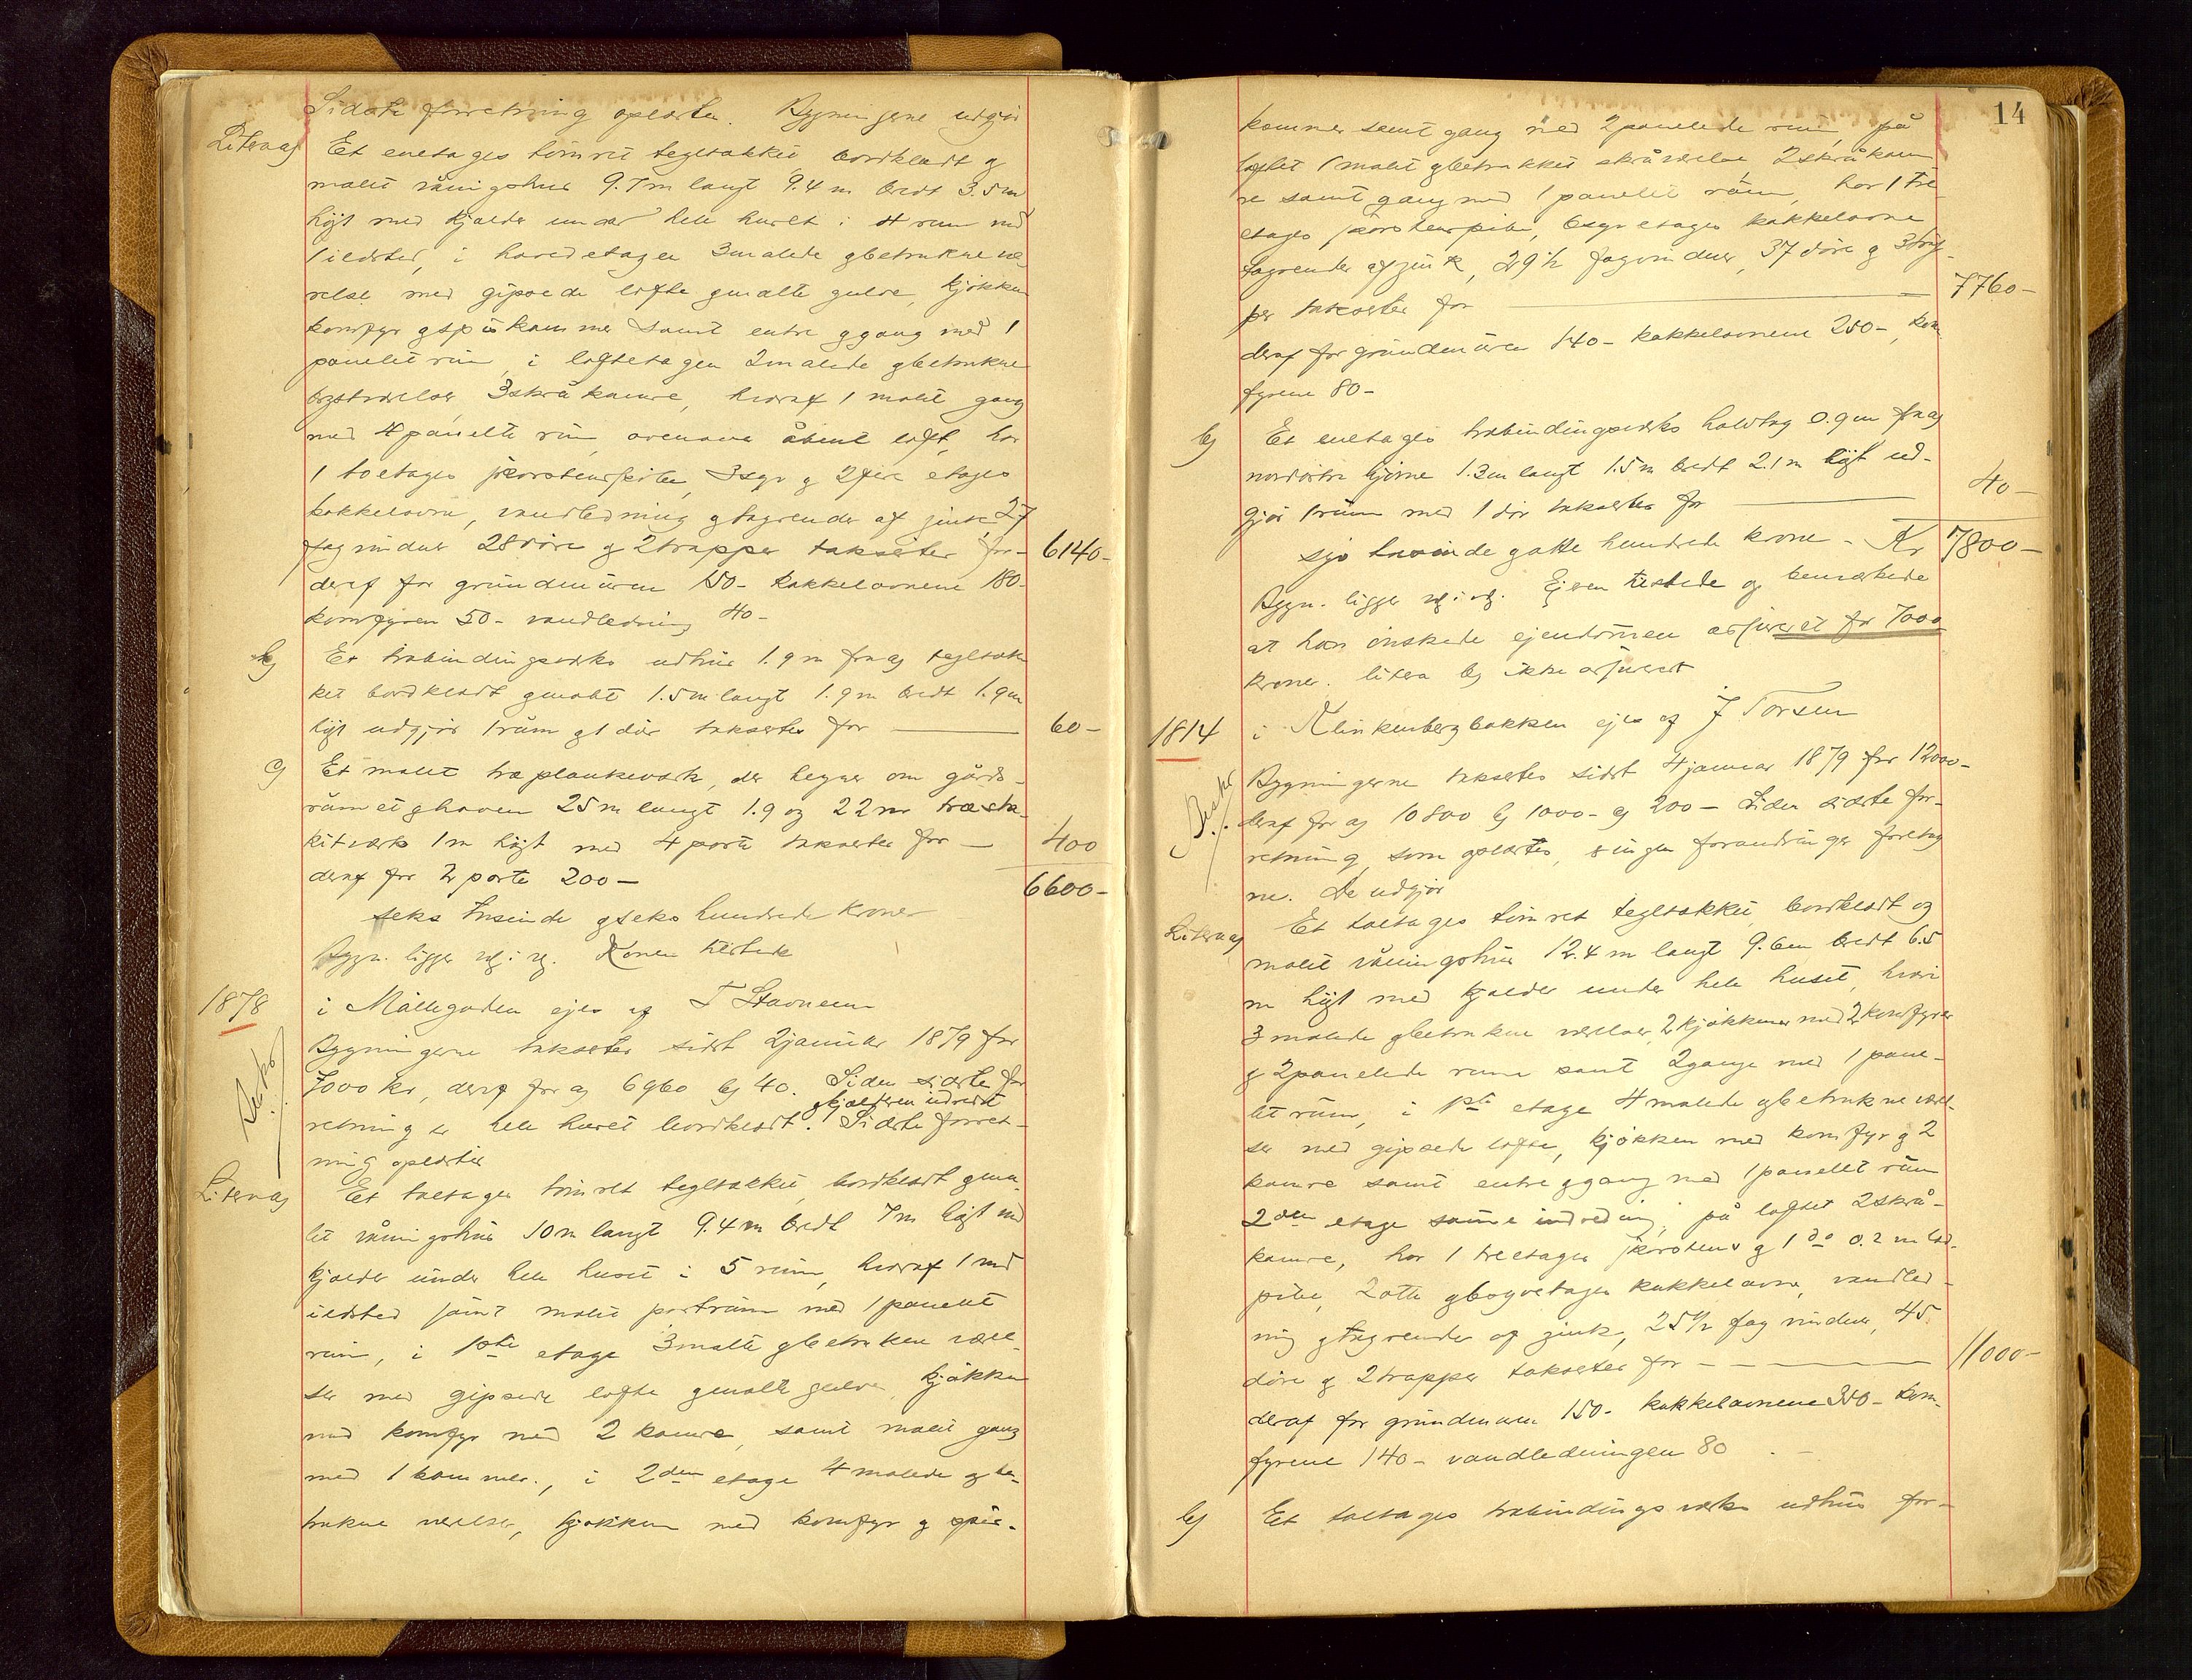 Sidste forretning oplæstes. Bygningerne udgjør
Litera a) Et enetages tömret tegltækket, bordklædt og
malet våningshus 9.7m langt 9.4 m bredt 3.5 m
højt med kjælder under hele huset i 4 rum med
1 ildsted, i hovedetagen 3 malede & betrukne væ-
relse med gipsede lofte & malte gulve, kjøkken
komfyr & spiskammer samt entre & gang med 1
panelet rum, i loftetagen 2 malede & betrukne
3 skråkamre, hvoraf 1 malet gang
med 4 panelte rum ovenover åbent loft, har
1 toetages skorstenspibe, 3 syv & 2 fire etages
kakkelovne, vandledning & tagrender af zink 27
fag vinduer 28 döre & 2 trapper takseres for - 6140-
deraf for grundmuren 150- kakkelovnene 180-
komfyren 50- vandledning 40-
b) Et træbindingsværks udhus 1.9 m fra a) tegltæk
ket bordklædt & malet 1.5 m langt 1.9 m bredt 1.9 m
højt udgjør 1 rum & 1 dör takseres for 60-
c) Et malet træplankeværk, der hegner om gårds-
rummet & haven 25 m langt 1.9 og 22 m træsta-
kitværk 1 m højt med 4 porte takseres for - 400
deraf for 2 porte 200 -
6600-
seks tusinde & seks hundrede kroner
Bygn. ligger Konen tilstede
1878 i Møllegaden ejes af T Stavnem
Bygningerne takseres sidst 2 januar 1879 for
7000 kr, deraf for a) 6960 b) 40. Siden sidste for
& kjælderen indredet
retning er hele huset bordklædt. Sidste forret-
ning oplæstes
Litera a) Et toetages tömret tegltækket, bordklædt & ma-
let våningshus 10 m langt 9.4 m bredt 7 m højt med
kjælder under hele huset i 5 rum, hvoraf 1 med
ildsted samt malet portrum med 1 panelet
rum, i 1ste etage 3 malte & betrukne værel-
ser med gipsede lofte & malte gulve, kjøkken
med komfyr med 2 kamre, samt malet gang
med 1 kammer., i 2den etage 4 malede & be-
trukne værelser, kjøkken med komfyr & spis-
14
kammer samt gang med 2 panelede rum, på
loftet 1 malet & betrukket skråværelse, 2 skråkam
re samt gang med 1 panelet rum, har 1 tre
etages skorstenspibe, 6 syv etages kakkelovne
tagrender af zink, 29½ fag vinduer, 37 döre & 3 trap-
per takseres for 7760-
deraf for grundmuren 140- kakkelovnene 250-, kom
fyrene 80-
b) Et enetages træbindingsværks halvtag 0.9 m fra a)
nordöstre hjörne 1.3 m langt 1.5 m bredt 2.1 m højt ud-
gjør 1 rum med 1 dör takseres for 40-
syv tusinde & otte hundrede krone - Kr 7800-
Bygn. ligger Ejeren tilstede og bemærkede
at han önskede ejendommen assureret for 7000
kroner. litera b) ikke assureret
1814 i Klinkenbergbakken ejes af J Torsen
Bygningerne takseres sidst 4 januar 1879 for 12000-
deraf for a) 10800 b) 1000- c) 200- Siden sidste for-
retning, som oplæstes, er ingen forandringer foretag
ne. De udgjör
Litera a) Et toetages tömret tegltækket, bordklædt og
malet våningshus 12.4 m langt 9.6 m bredt 6.5
m højt med kjælder under hele huset, hvori
3 malede & betrukne værelser, 2 kjøkkener med 2 komfyrer
& 2 panelede rum samt 2 gange med 1 pane-
let rum, i 1ste etage 4 malede & betrukne værel-
ser med gipsede lofte, kjökken med komfyr & 2
kamre samt entre & gang med 1 panelet rum
2den etage samme indredning, på loftet 2 skrå-
kamre, har 1 treetages skorstens & 1 do 0.2 m
pibe, 2 otte & 6 syvetages kakkelovne, vandled-
ning & tagrender af zink, 25½ fag vinduer, 45
döre & 2 trapper takseres for 11000-
deraf for grundmuren 150- kakkelovnene 350- kom-
fyrene 140- vandledningen 80
b) Et toetages træbindingsværks udhus for-